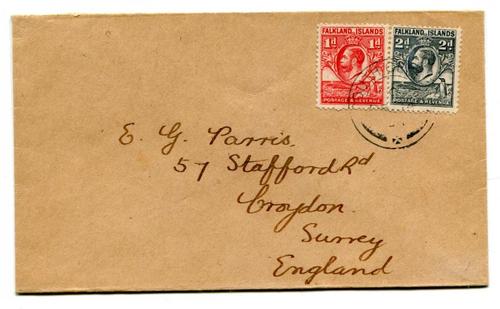 FALKLAND ISLANDS
1d 1d
POSTAGE & REVENUE
FALKLAND ISLANDS
2d 2d
POSTAGE & REVENUE
E. G. Parris.
57 Stafford Rd
Croydon.
Surrey
England